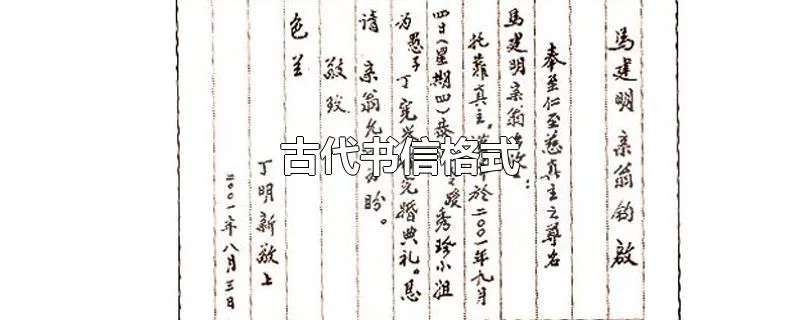 馬建明 亲翁钧啟
奉至仁至慈真主之尊名
馬建明亲翁：
托靠真主，於二00一年九月
四日（星期四）恭嫒秀珍小姐
为愚子丁宪完婚典礼。恳
请 亲翁允为盼。
敬致
色兰
丁明新敬上
二00一年八月三日
古代书信格式